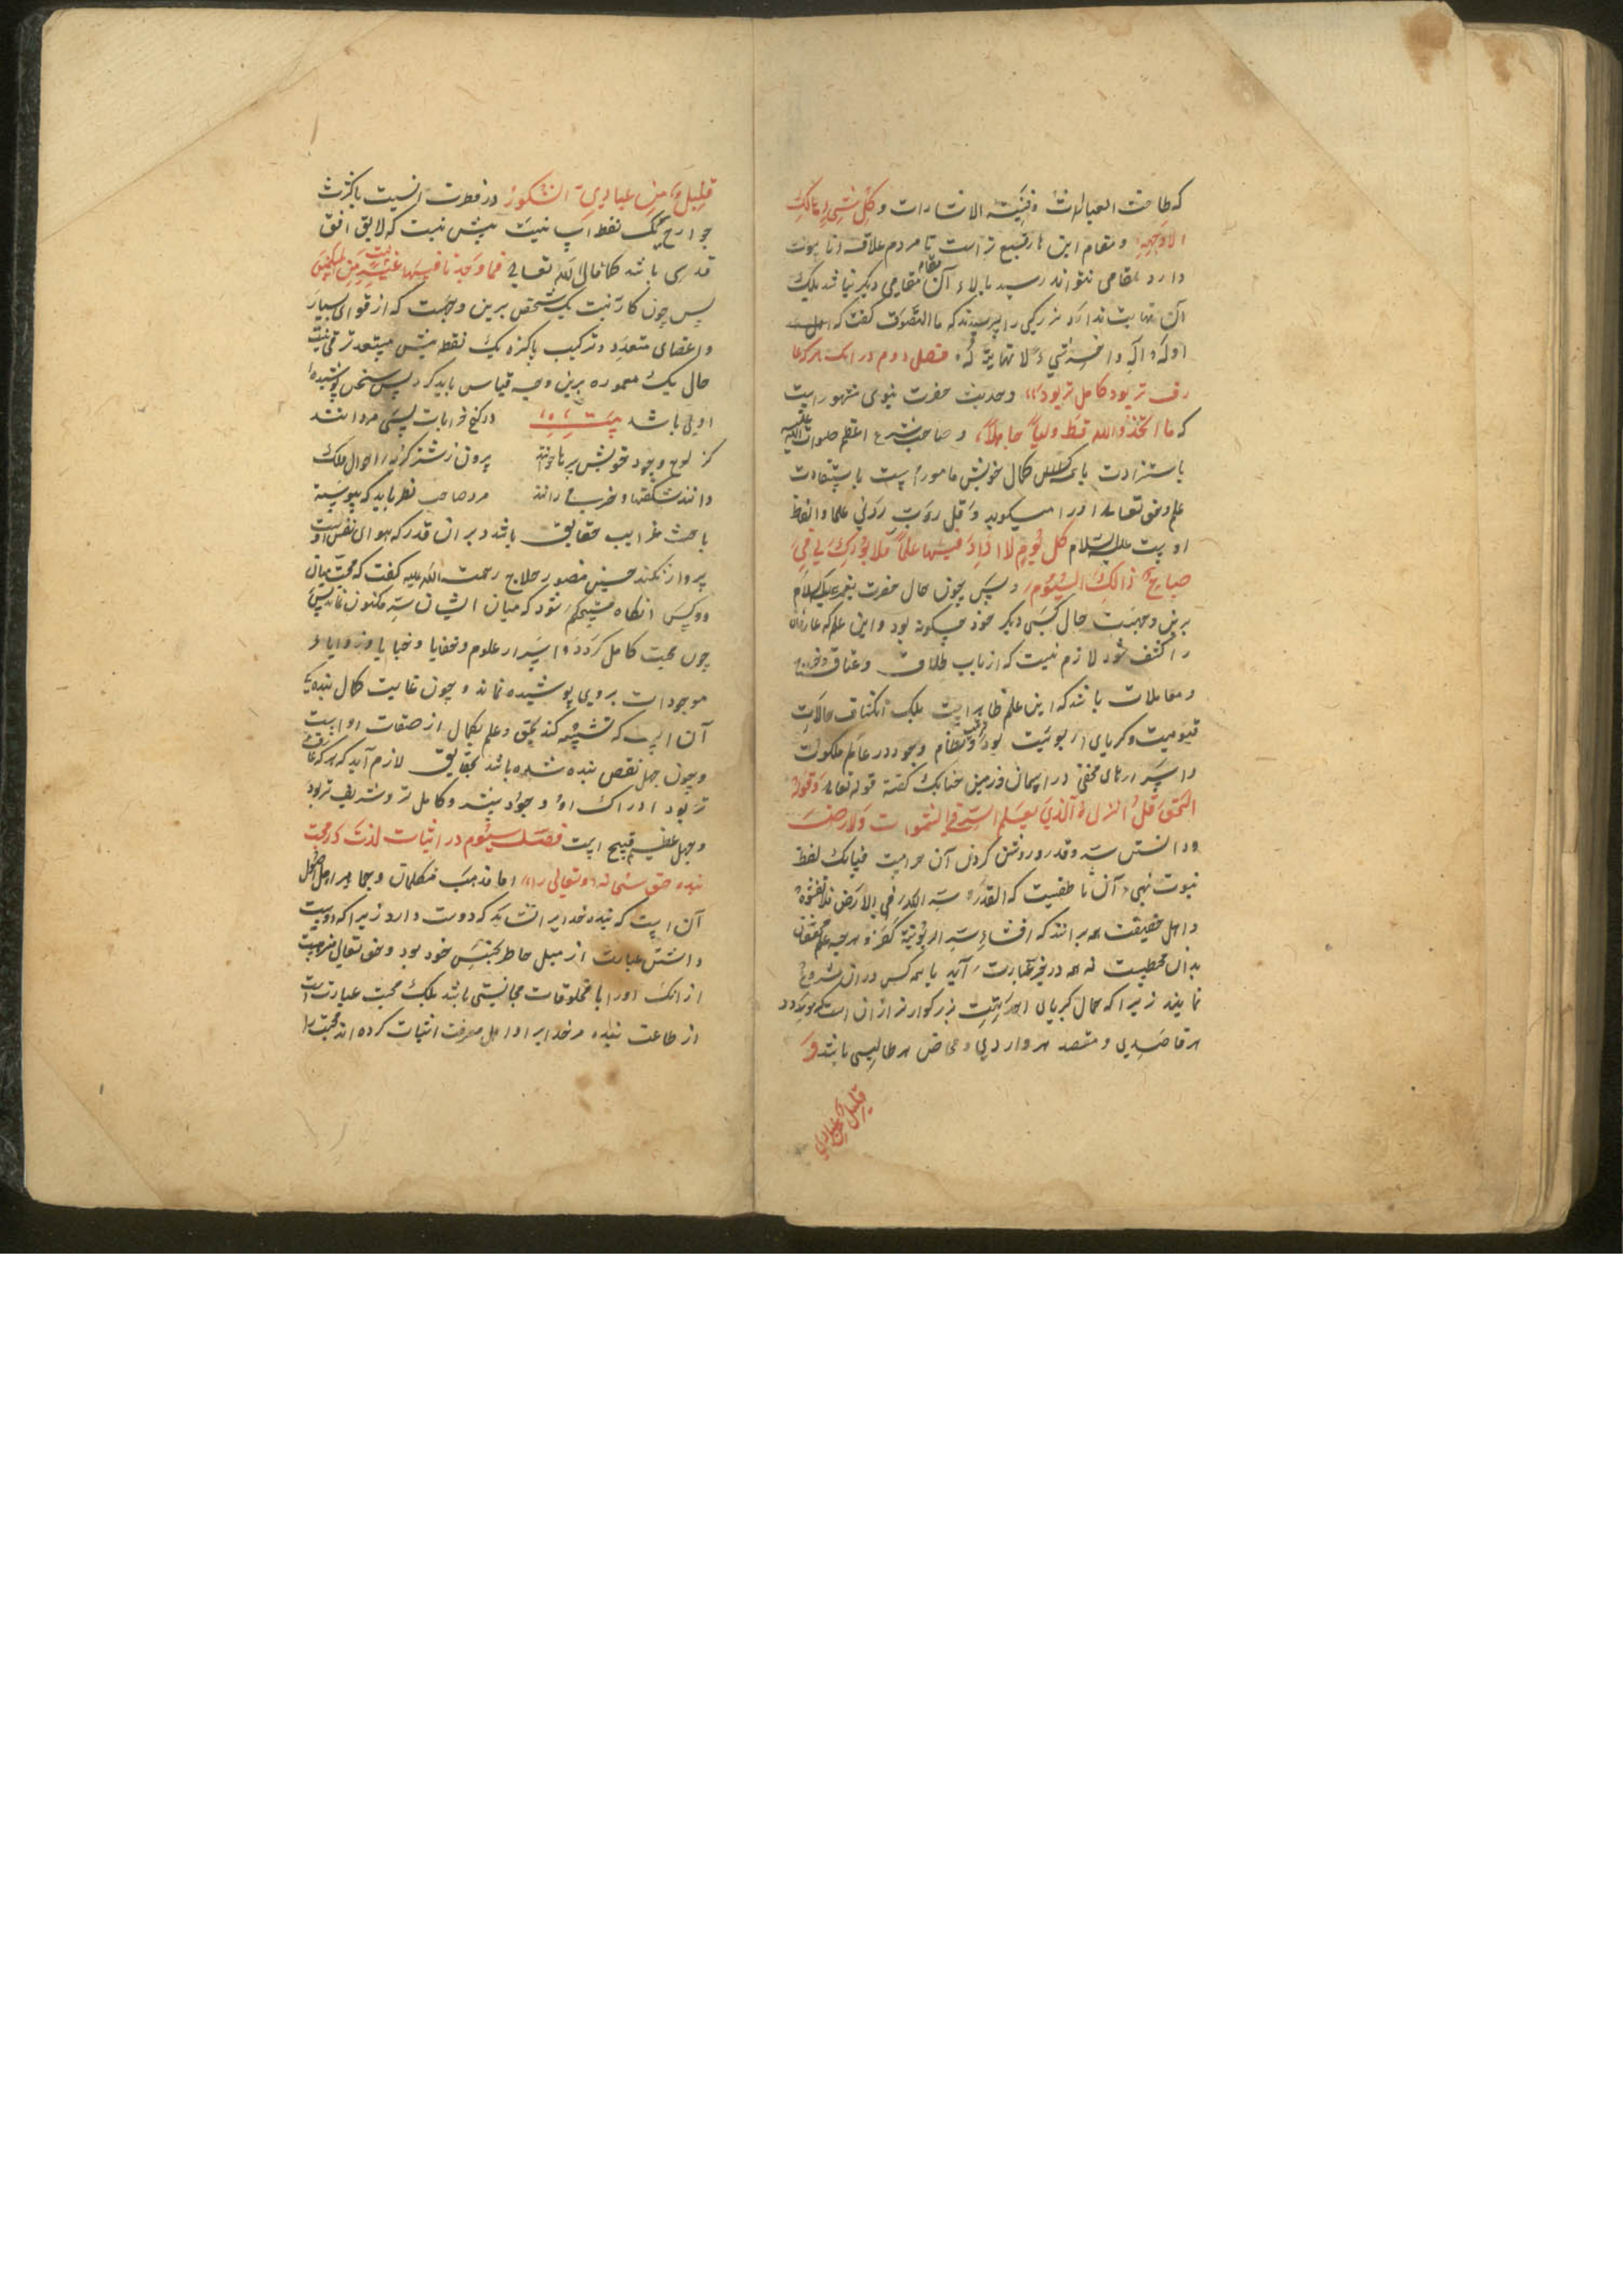 که طاحت العبارات وفنیت الاشارات وکل شیء هالک
الا وجهه ومقام این رفیع تر است تا مردم علاقه انا نیت
دارد بمقامی نتواند رسید بالاء آن مقام مقامی دیگر نباشد بلک
آن نهایت ندارد بزرکی را پرسیدند که ما التصوف کفت که
اوله الله واخره شیء لا نهایة له فصل دوم در انک هرکه عا
رف تر بود کامل تر بود وحدیث حضرت نبوی مشهور است
که ما اتخذ الله قط ولیا جاهلا وصاحب شرع اعظم صلوات الله علیه
باستزادت کمال خویش مامور است باستفادت
علم وحق تعالی اورا میکوید وقل رب زدنی علما والفاظ
اوست علیه السلام کل یوم لا ازداد فیها علما فلا بورک لی فی
صباح ذالک الیوم پس چون حال حضرت پیغمبر علیه السلام
برین وجهست حال کسی دیکر خود چکونه بود واین علم که عارفان
را کشف شود لازم نیست که از باب طلاق وعتاق
ومعاملات باشد که این علم ظاهر است بلک انکشاف حالات
قیومیت وکبریای ربوبیت بود وترتیب نظام وجود در عالم ملکوت
واسرارهای مخفی در اسمان وزمین چنانک کفته قوله تعالی وقوله
الحق قل انزله الذی یعلم السر فی السموات والارض
ودانستن سر وقدر وروشن کردن آن حرامست چنانک لفظ
نبوت بنهی آن ناطقست که القدر سر الله فی الارض فلا تفشوه
واهل حقیقت همه برانند که افشاء سر الربوبیة کفر وهرچه علم محققان
بدان محیطست نه همه در تحریر عبارت آید یا همه کس در ان شروع
نمایند زیرا که جمال کبریای احدیت بزرکوارتر از ان است که مورد
هر قاصدی ومقصد هر واردی ومخاض هر طالبی باشد و
قلیل من عبادی
قلیل من عبادی الشکور در فطرت انسیت با کثرت
جوارح یک نقطه است نیست بیش نیست که لایق افق
قدسی باشد کما قال الله تعالی فما وجدنا فیها غیر بیت من المسلمین
پس چون کار آنست یک شخص برین وجهست که از قوای بسیار
واعضای متعدد وترکیب پاکیزه یک نقطه بیش مستعد ترقی نیست
حال یک معموره برین وجه قیاس باید کرد پس سخن پوشیده
اولی باشد بیت در کنج خرابات بسی مردانند
کز لوح وجود خویش برها خوانند بیرون ز شتر کربه احوال ملک
دانند شکفتها وخرمی رانند مرد صاحب نظر باید که پیوسته
باحث غرایب حقایق باشد بر ان قدر که هوای نفس اوست
پرواز نکند حسین منصور حلاج رحمت الله علیه کفت که محبت میان
دو کس انکاه مستحکم شود که میان ایشان سر مکنون نماند پس
چون محبت کامل کردد اسرار علوم وخفایا وخبایا وزوایاء
موجودات بر وی پوشیده نماند وچون غایت کمال بنده
آن است که تشبه کند بحق وعلم بکمال از صفات اواست
وچون جهل نقص بنده شده باشد بحقایق لازم آید که هرکه عارف
تر بود ادراک او وجود بیند وکامل تر وشریف تر بود
وجهل عظیم قبیح است فصل سیوم در اثبات لذت در محبت
بنده حق سبحانه وتعالی را اما مذهب متکلمان وجماهیر اهل
آن است که بنده خدایرا نشاید که دوست دارد زیرا که دوست
داشتن عبارت از میل خاطر بجنس خود بود وحق تعالی منزهست
از انک اورا با مخلوقات مجانستی باشد بلک محبت عبارت است
از طاعت بنده مر خدایرا واهل معرفت اثبات کرده اند محبت را